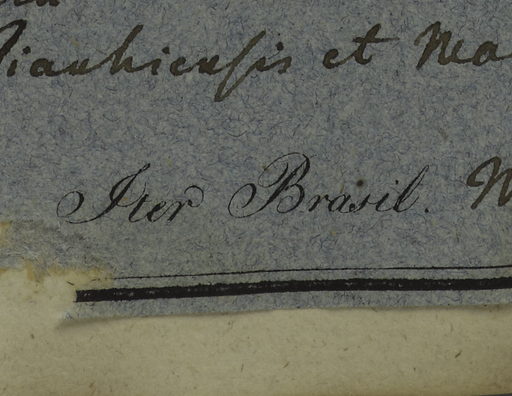 Piauhiensis et Ma
Iter Brasil. M